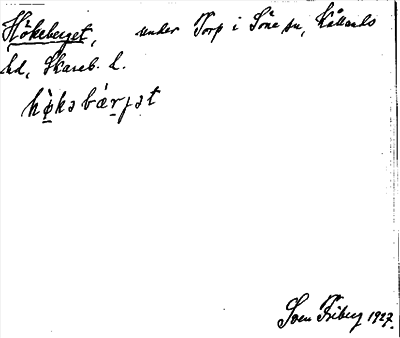 Hökeberget, under Torp i Söne sn, Kållands
hd, Skarab. l.
hø̀kəbárɟət
Sven Friberg 1927.